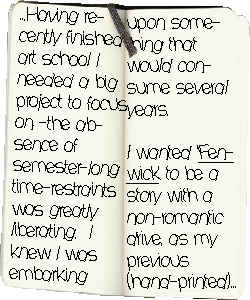 ...Having re-
cently finished
art school I
needed a big
project to focus
on - the ab-
sence of
semester-long
time-restraints
was greatly
liberating. I
knew I was
embarking
upon some-
thing that
would con-
sume several
years.
I wanted 'Fen-
wick' to be a
story with a
non-romantic
drive, as my
previous
(hand-printed)...